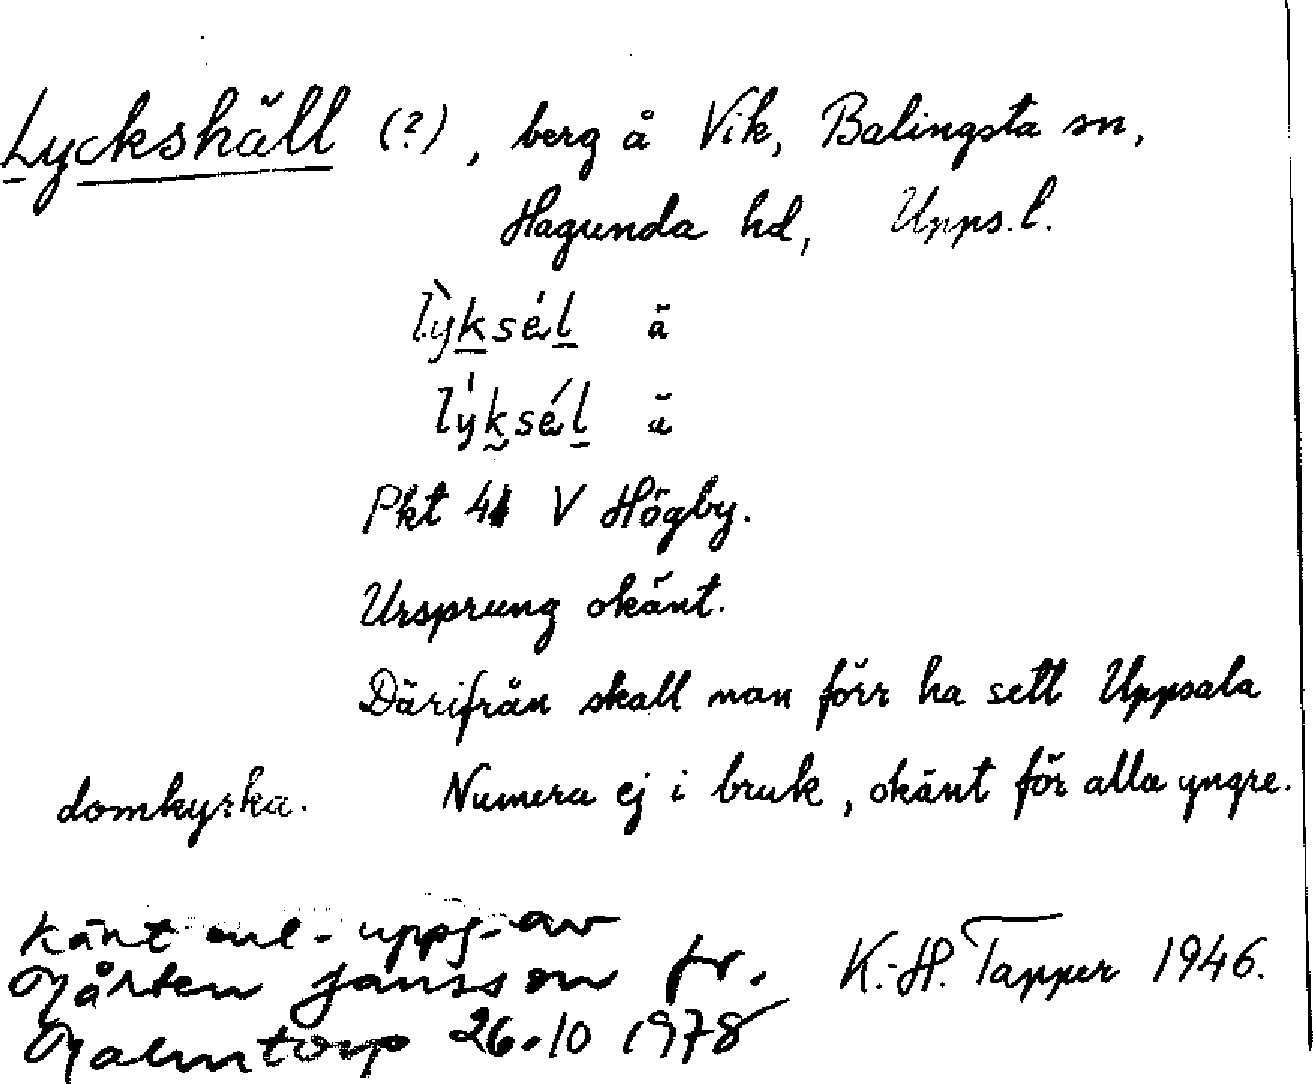 Lyckshäll (?), berg å Vik, Balingsta sn,
Hagunda hd, Upps. l.
lỳksél ä
lýksél ä
Pkt 41 V Högby.
Ursprung okänt.
Därifrån skall man förr ha sett Uppsala
domkyrka. Numera ej i bruk, okänt för alla yngre.
Känt enl. uppg. av
Mårten Jansson fr.
Malmtorp 26.10 1978
K.-H. Tapper 1946.